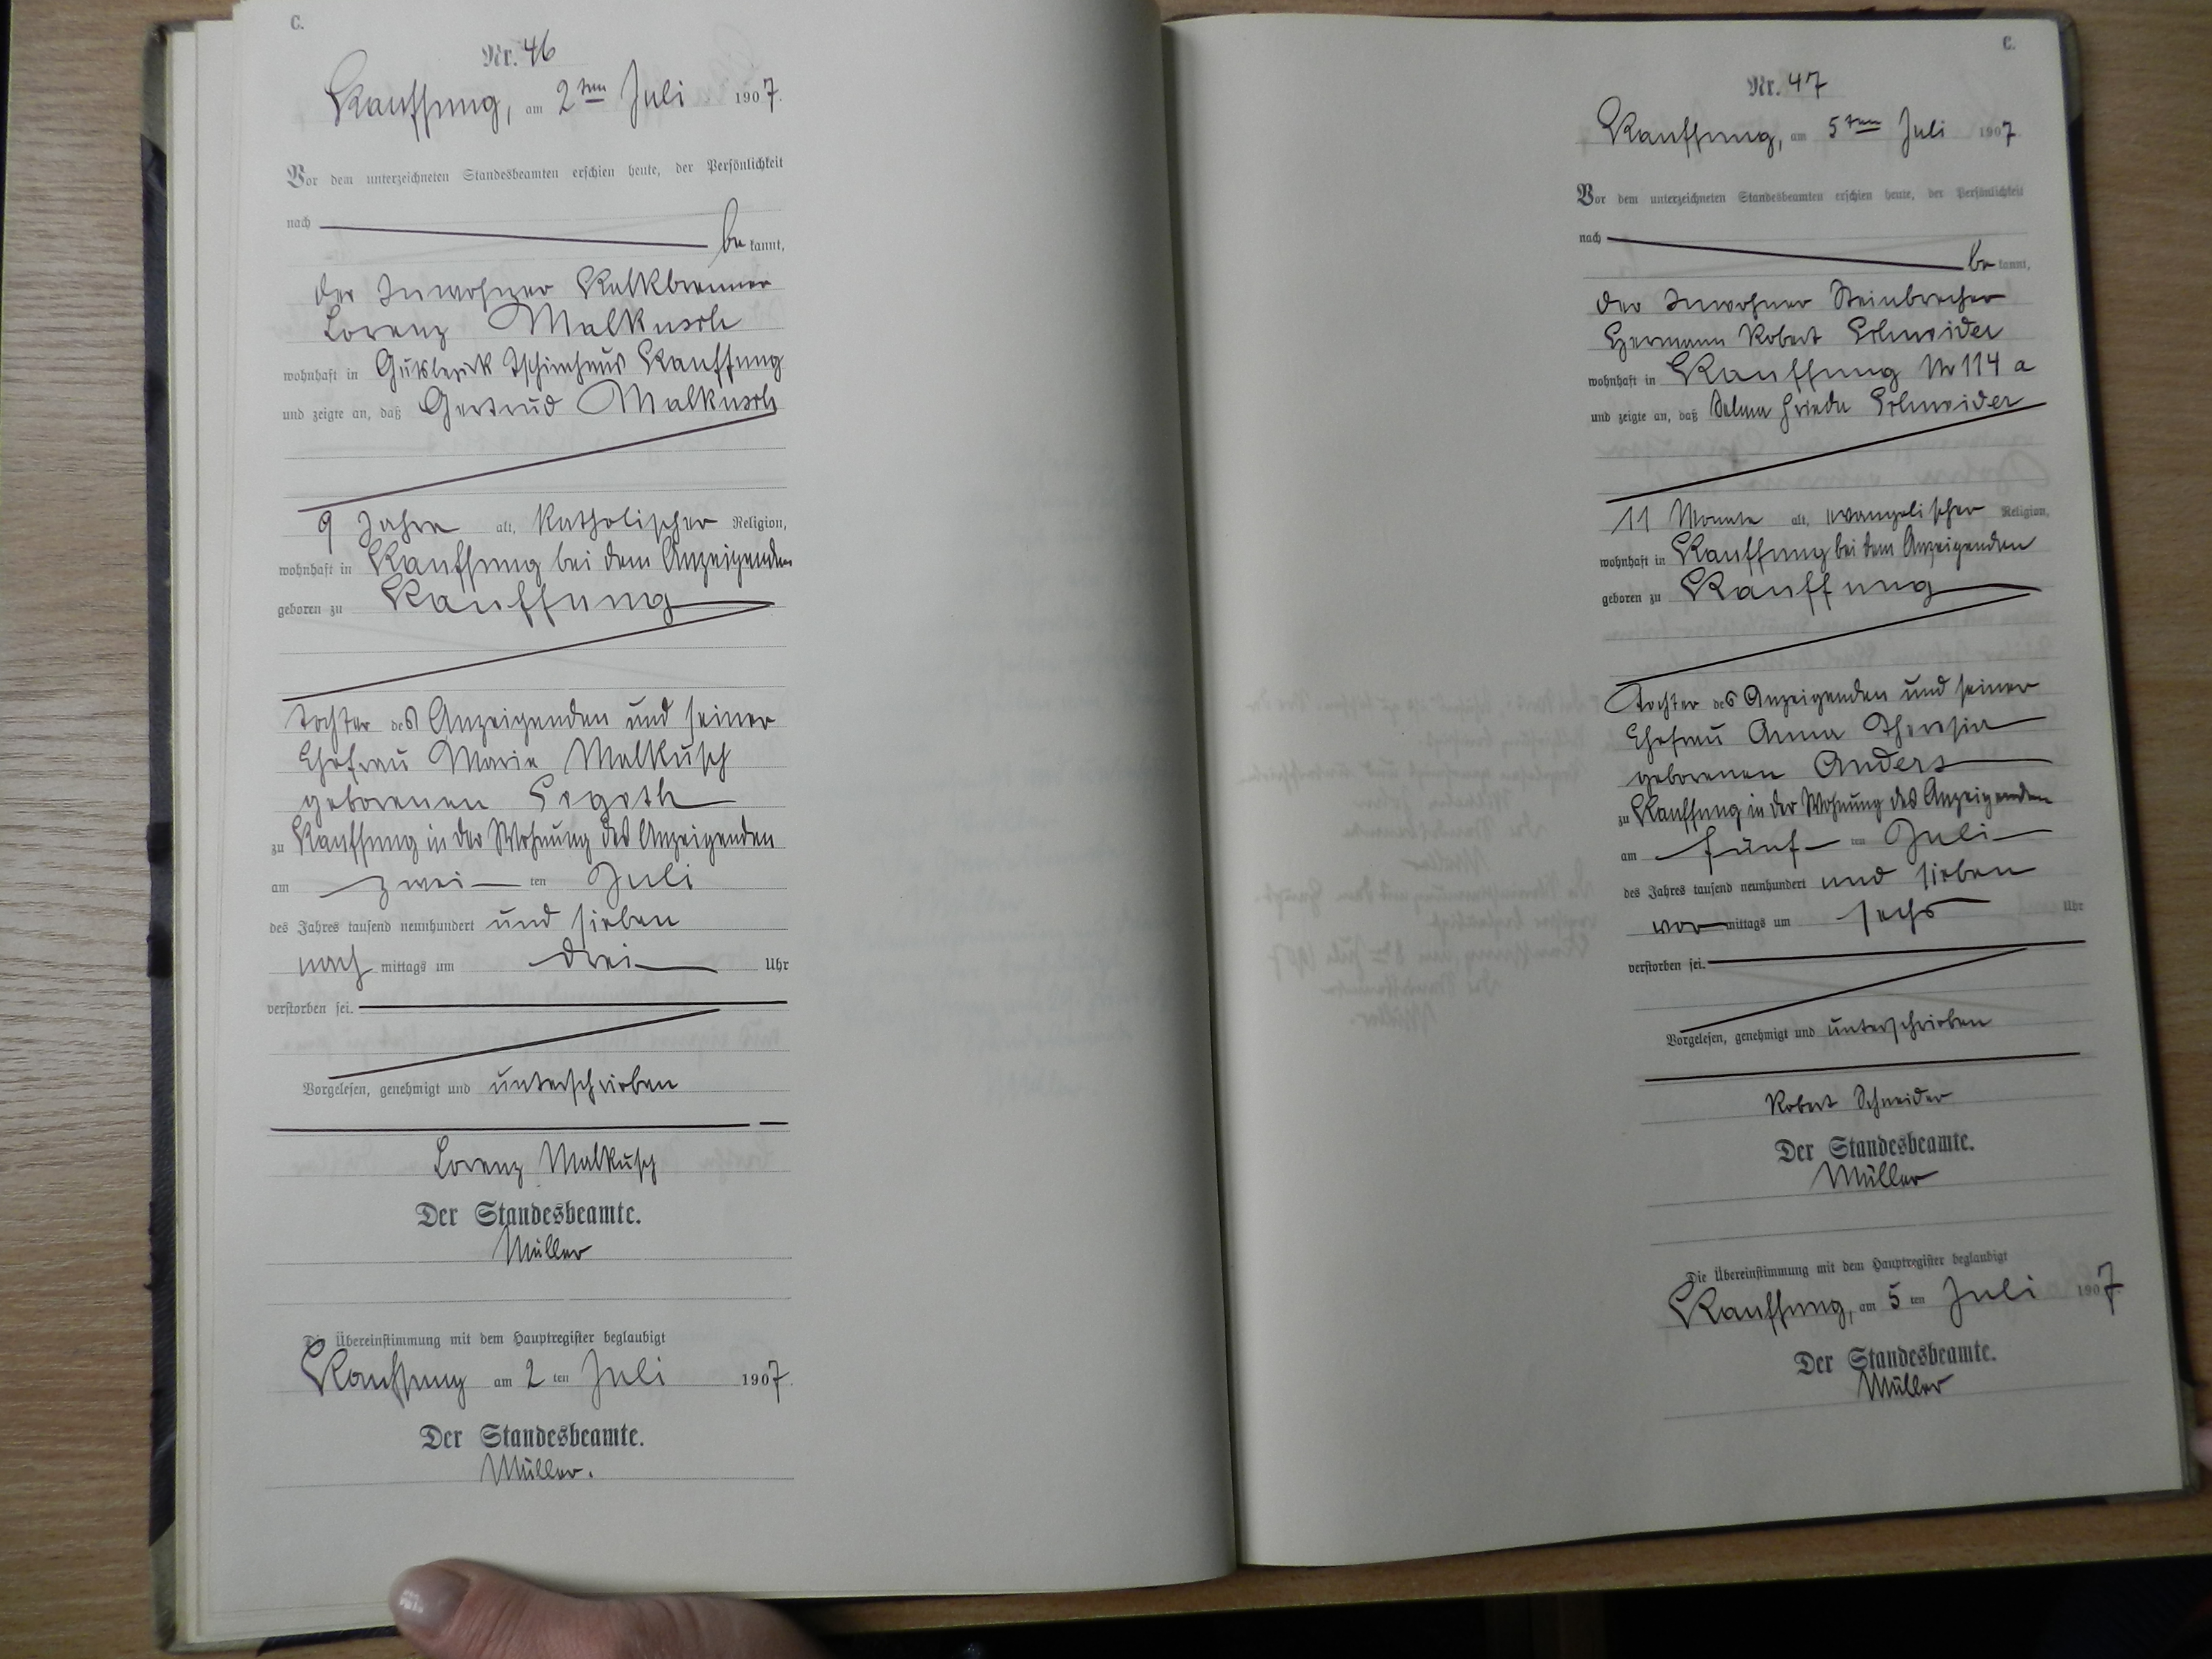 C.
Nr. 46
Kauffung, am 2ten Juli 1907.
Vor dem unterzeichneten Standesbeamten erschien heute, der Persönlichkeit
nach be kannt,
der Inwohner Kalkbrenner
Lorenz Malkusch
wohnhaft in Gutsbezirk Tschirnhaus Kauffung
und zeigte an, daß Gertrud Malkusch
9 Jahre alt, katholischer Religion,
wohnhaft in Kauffung bei dem Anzeigenden
geboren zu Kauffung
Tochter des Anzeigenden und seiner
Ehefrau Marie Malkusch
geborenen
zu Kauffung in der Wohnung des Anzeigenden
am zwei ten Juli
des Jahres tausend neunhundert und sieben
nach mittags um drei Uhr
verstorben sei.
Vorgelesen, genehmigt und unterschrieben
Lorenz Malkusch
Der Standesbeamte.
Müller
Die Übereinstimmung mit dem Hauptregister beglaubigt
Kauffung am 2 ten Juli 1907.
Der Standesbeamte.
Müller.
C.
Nr. 47
Kauffung, am 5ten Juli 1907.
Vor dem unterzeichneten Standesbeamten erschien heute, der Persönlichkeit
nach be kannt,
der Inwohner Steinbrecher
Hermann Robert Schneider
wohnhaft in Kauffung No 114 a
und zeigte an, daß Selma Frieda Schneider
11 Monate alt, evangelischer Religion,
wohnhaft in Kauffung bei dem Anzeigenden
geboren zu Kauffung
Tochter des Anzeigenden und seiner
Ehefrau Anna Theresia
geborenen Anders
zu Kauffung in der Wohnung des Anzeigenden
am fünf ten Juli
des Jahres tausend neunhundert und sieben
vor mittags um sechs Uhr
verstorben sei.
Vorgelesen, genehmigt und unterschrieben
Robert Schneider
Der Standesbeamte.
Müller
Die Übereinstimmung mit dem Hauptregister beglaubigt
Kauffung, am 5 ten Juli 1907.
Der Standesbeamte.
Müller